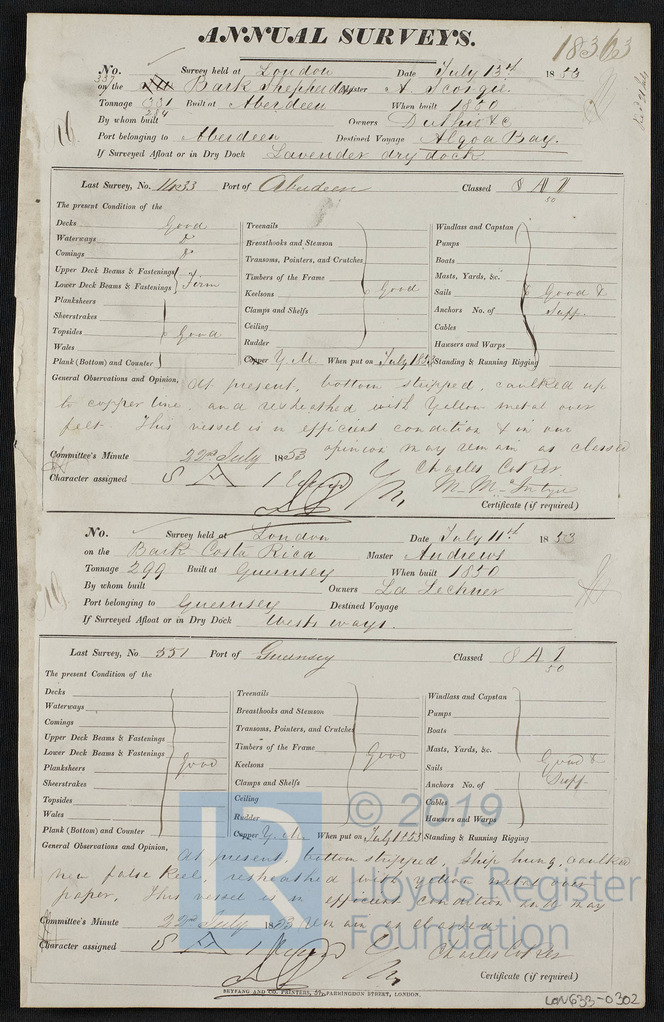 ANNUAL SURVEYS.
18363
No. Survey held at London Date July 13th 1853
337
on the Bark Shepherdess Master A Scorgie.
Tonnage 331 Built at Aberdeen When built 1850
384
By whom built Owners Duthie & Co
Port belonging to Aberdeen Destined Voyage Algoa Bay.
If Surveyed Afloat or in Dry Dock Lavender dry dock
Last Survey, No. 1433 Port of Aberdeen Classed 8 A 1
50
The present Condition of the
Decks Good
Waterways
Comings
Upper Deck Beams & Fastenings
Lower Deck Beams & Fastenings Firm
Planksheers
Sheerstrakes
Topsides Good
Wales
Plank (Bottom) and Counter
Treenails
Breasthooks and Stemson
Transoms, Pointers, and Crutches
Timbers of the Frame
Keelsons Good
Clamps and Shelfs
Ceiling
Rudder
Copper Y. M. When put on July 1853
Windlass and Capstan
Pumps
Boats
Masts, Yards, &c.
Sails Good &
Anchors No. of Suff.
Cables
Hawsers and Warps
Standing & Running Rigging
General Observations and Opinion, At present, bottom stripped, caulked up
to copper line, and resheathed with Yellow metal over
felt. This vessel is in efficient condition & in our
opinion may remain as classed
Committee's Minute 22nd July 1853
Charles Coker
Character assigned 8 A 1
Certificate (if required)
No. Survey held at London Date July 11th 1853
on the Bark Costa Rica Master Andrews
Tonnage 299 Built at Guernsey When built 1850
By whom built Owners
Port belonging to Guernsey Destined Voyage
If Surveyed Afloat or in Dry Dock
Last Survey, No 551 Port of Guernsey Classed 8 A 1
50
The present Condition of the
Decks
Waterways
Comings
Upper Deck Beams & Fastenings
Lower Deck Beams & Fastenings
Planksheers Good
Sheerstrakes
Topsides
Wales
Plank (Bottom) and Counter
Treenails
Breasthooks and Stemson
Transoms, Pointers, and Crutches
Timbers of the Frame Good
Keelsons
Clamps and Shelfs
Ceiling
Rudder
Copper Y. M. When put on July 1853
Windlass and Capstan
Pumps
Boats
Masts, Yards, &c.
Sails Good &
Anchors No. of Suff.
Cables
Hawsers and Warps
Standing & Running Rigging
General Observations and Opinion,
At present bottom stripped, Ship hung, caulked
new false keel, resheathed with yellow metal over
paper. This vessel is in efficient condition and may
Committee's Minute 22nd July 1853 remain as classed
Character assigned 8 A 1 Charles Coker
Certificate (if required)
SEYFANG AND CO. PRINTERS, 57, FARRINGDON STREET, LONDON.
LON633-0302
LR © 2019
Lloyd's Register
Foundation